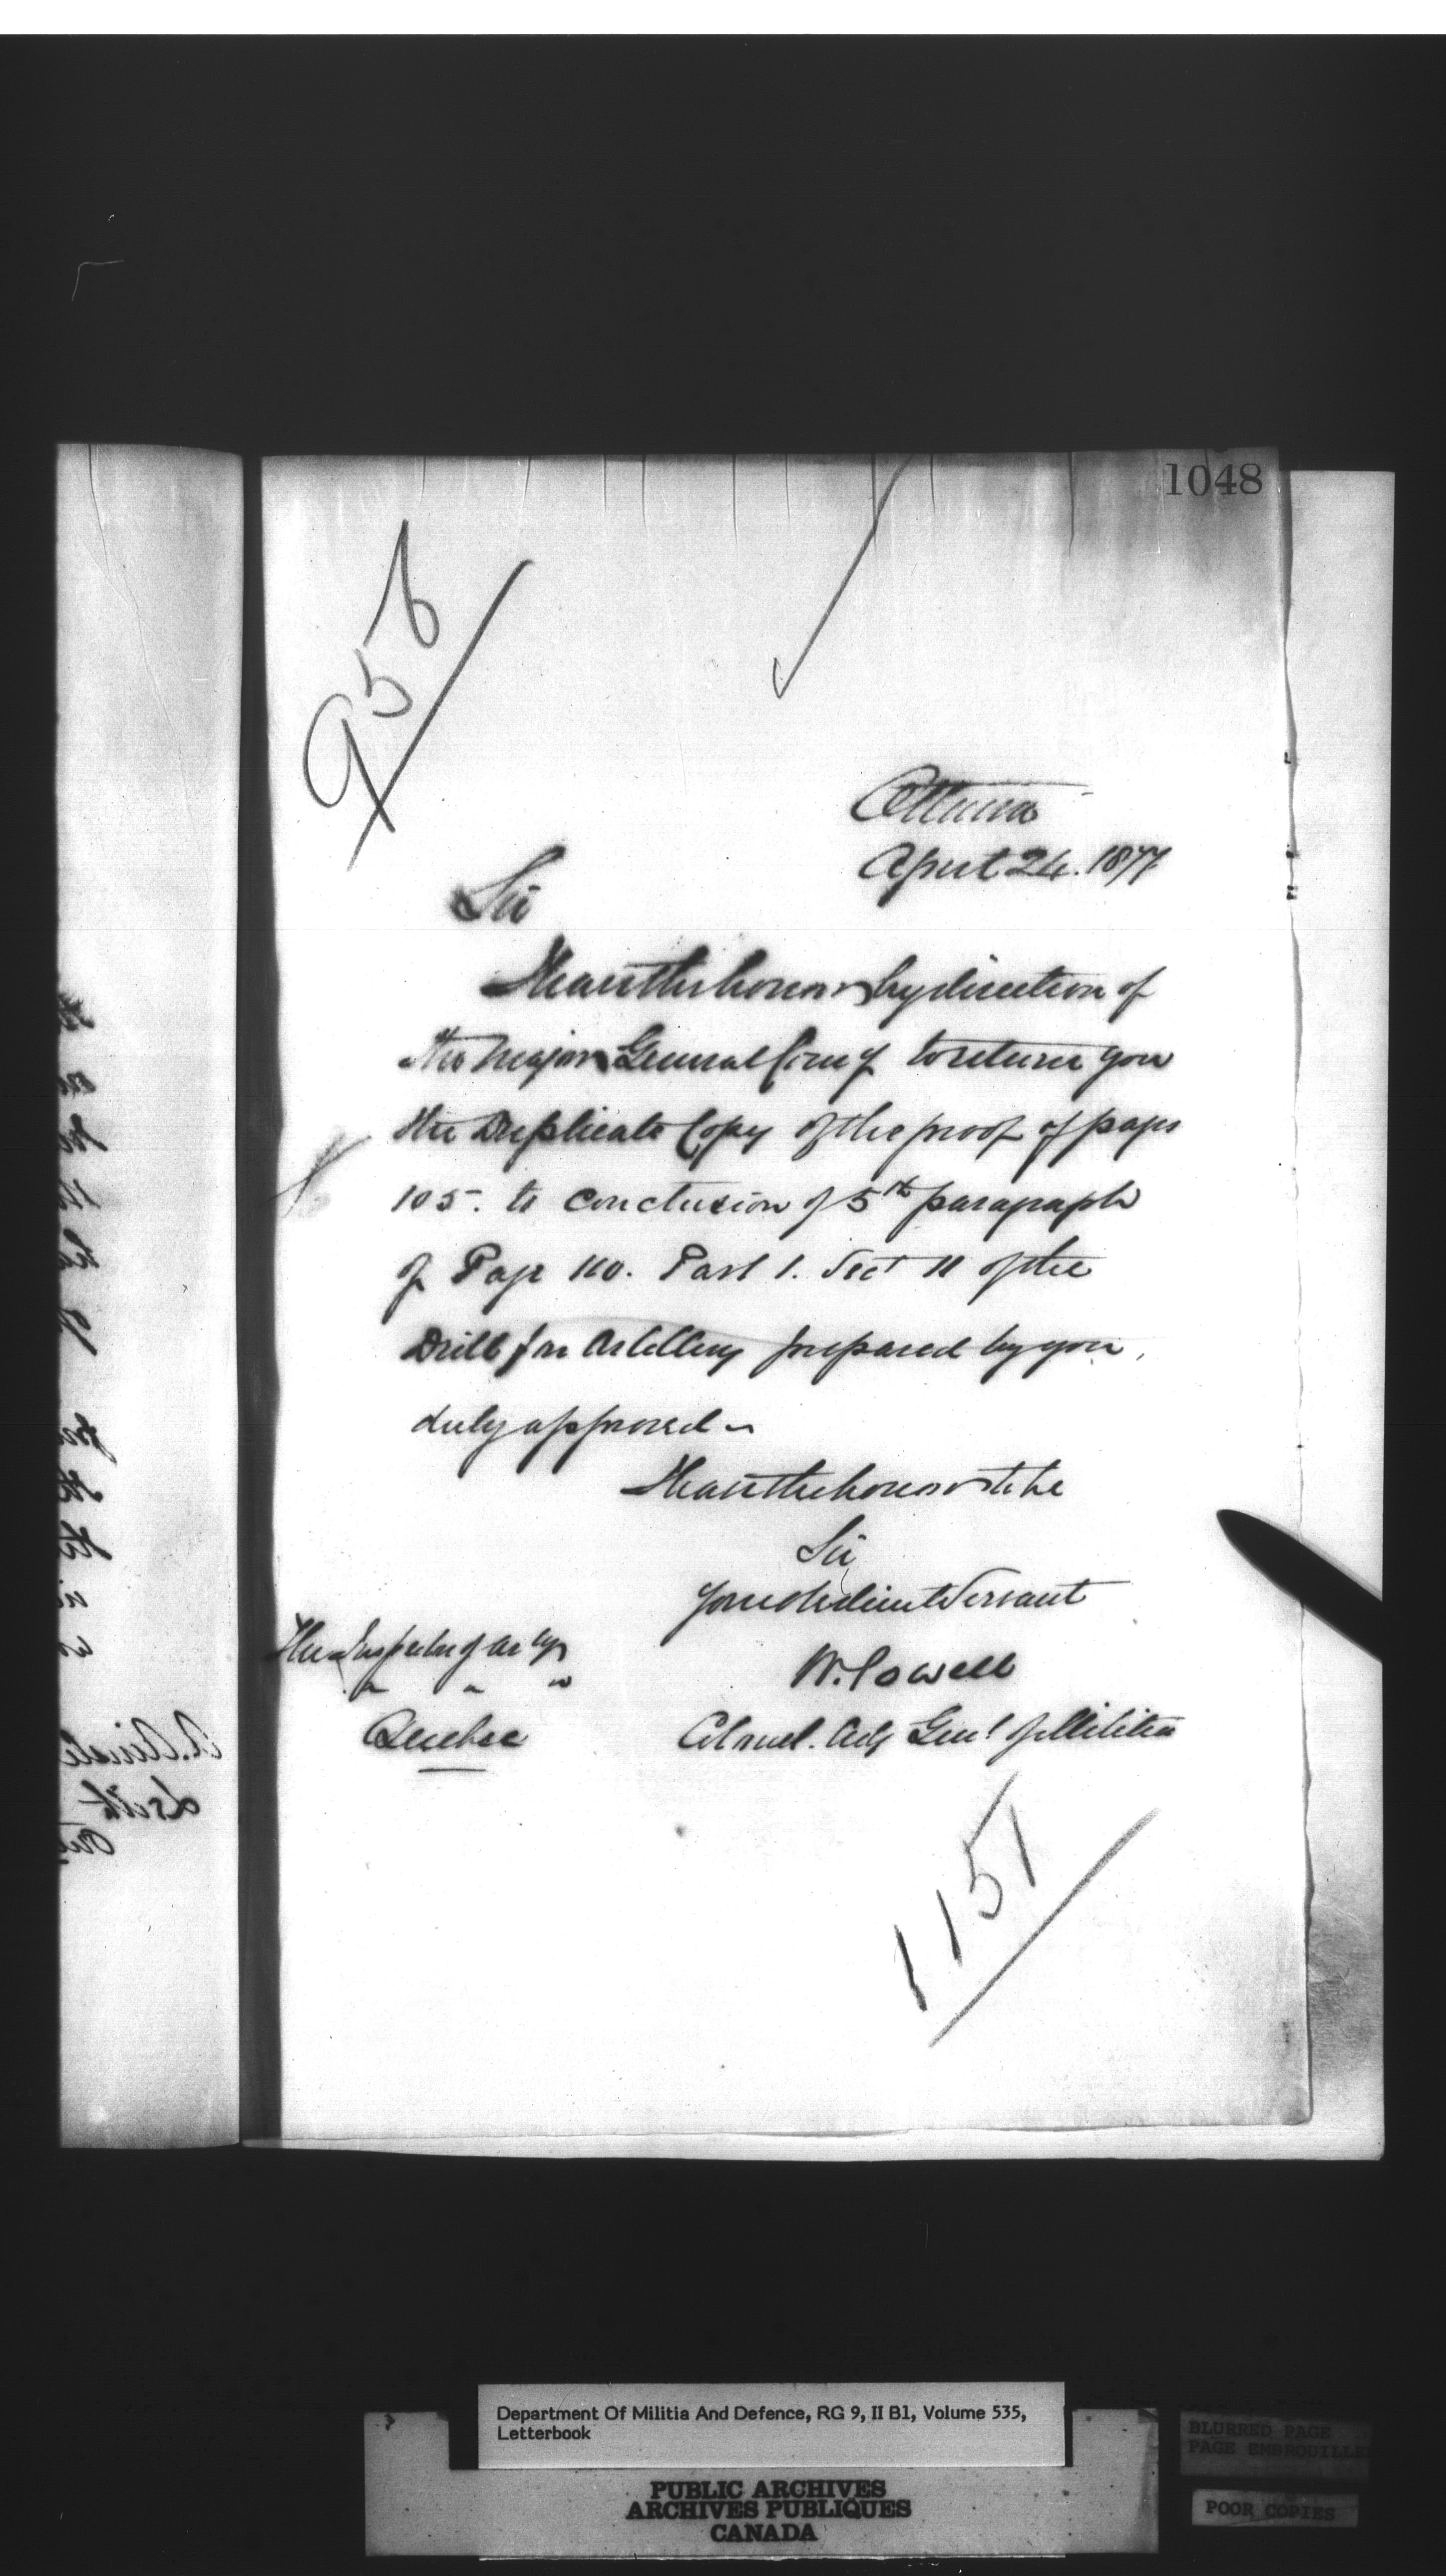 1048
956
Ottawa
April 24. 1877
Sir
I have the honor by direction of
the Major General Comg to return you
the Duplicate Copy of the proof of pages
105. to conclusion of 5th paragraph
of Page 110. Part 1. Sect II of the
Drill for Artillery prepared by you,
duly approved
I have the honor to be
Sir
Your obedient Servant
The Inspector of Arty
W. Powell
" " "
Quebec
Colonel. Adj Genl of Militia
1151
Department Of Militia And Defence, RG 9, II B1, Volume 535,
Letterbook
PUBLIC ARCHIVES
ARCHIVES PUBLIQUES
CANADA
BLURRED PAGE
PAGE EMBROUILLE
POOR COPIES